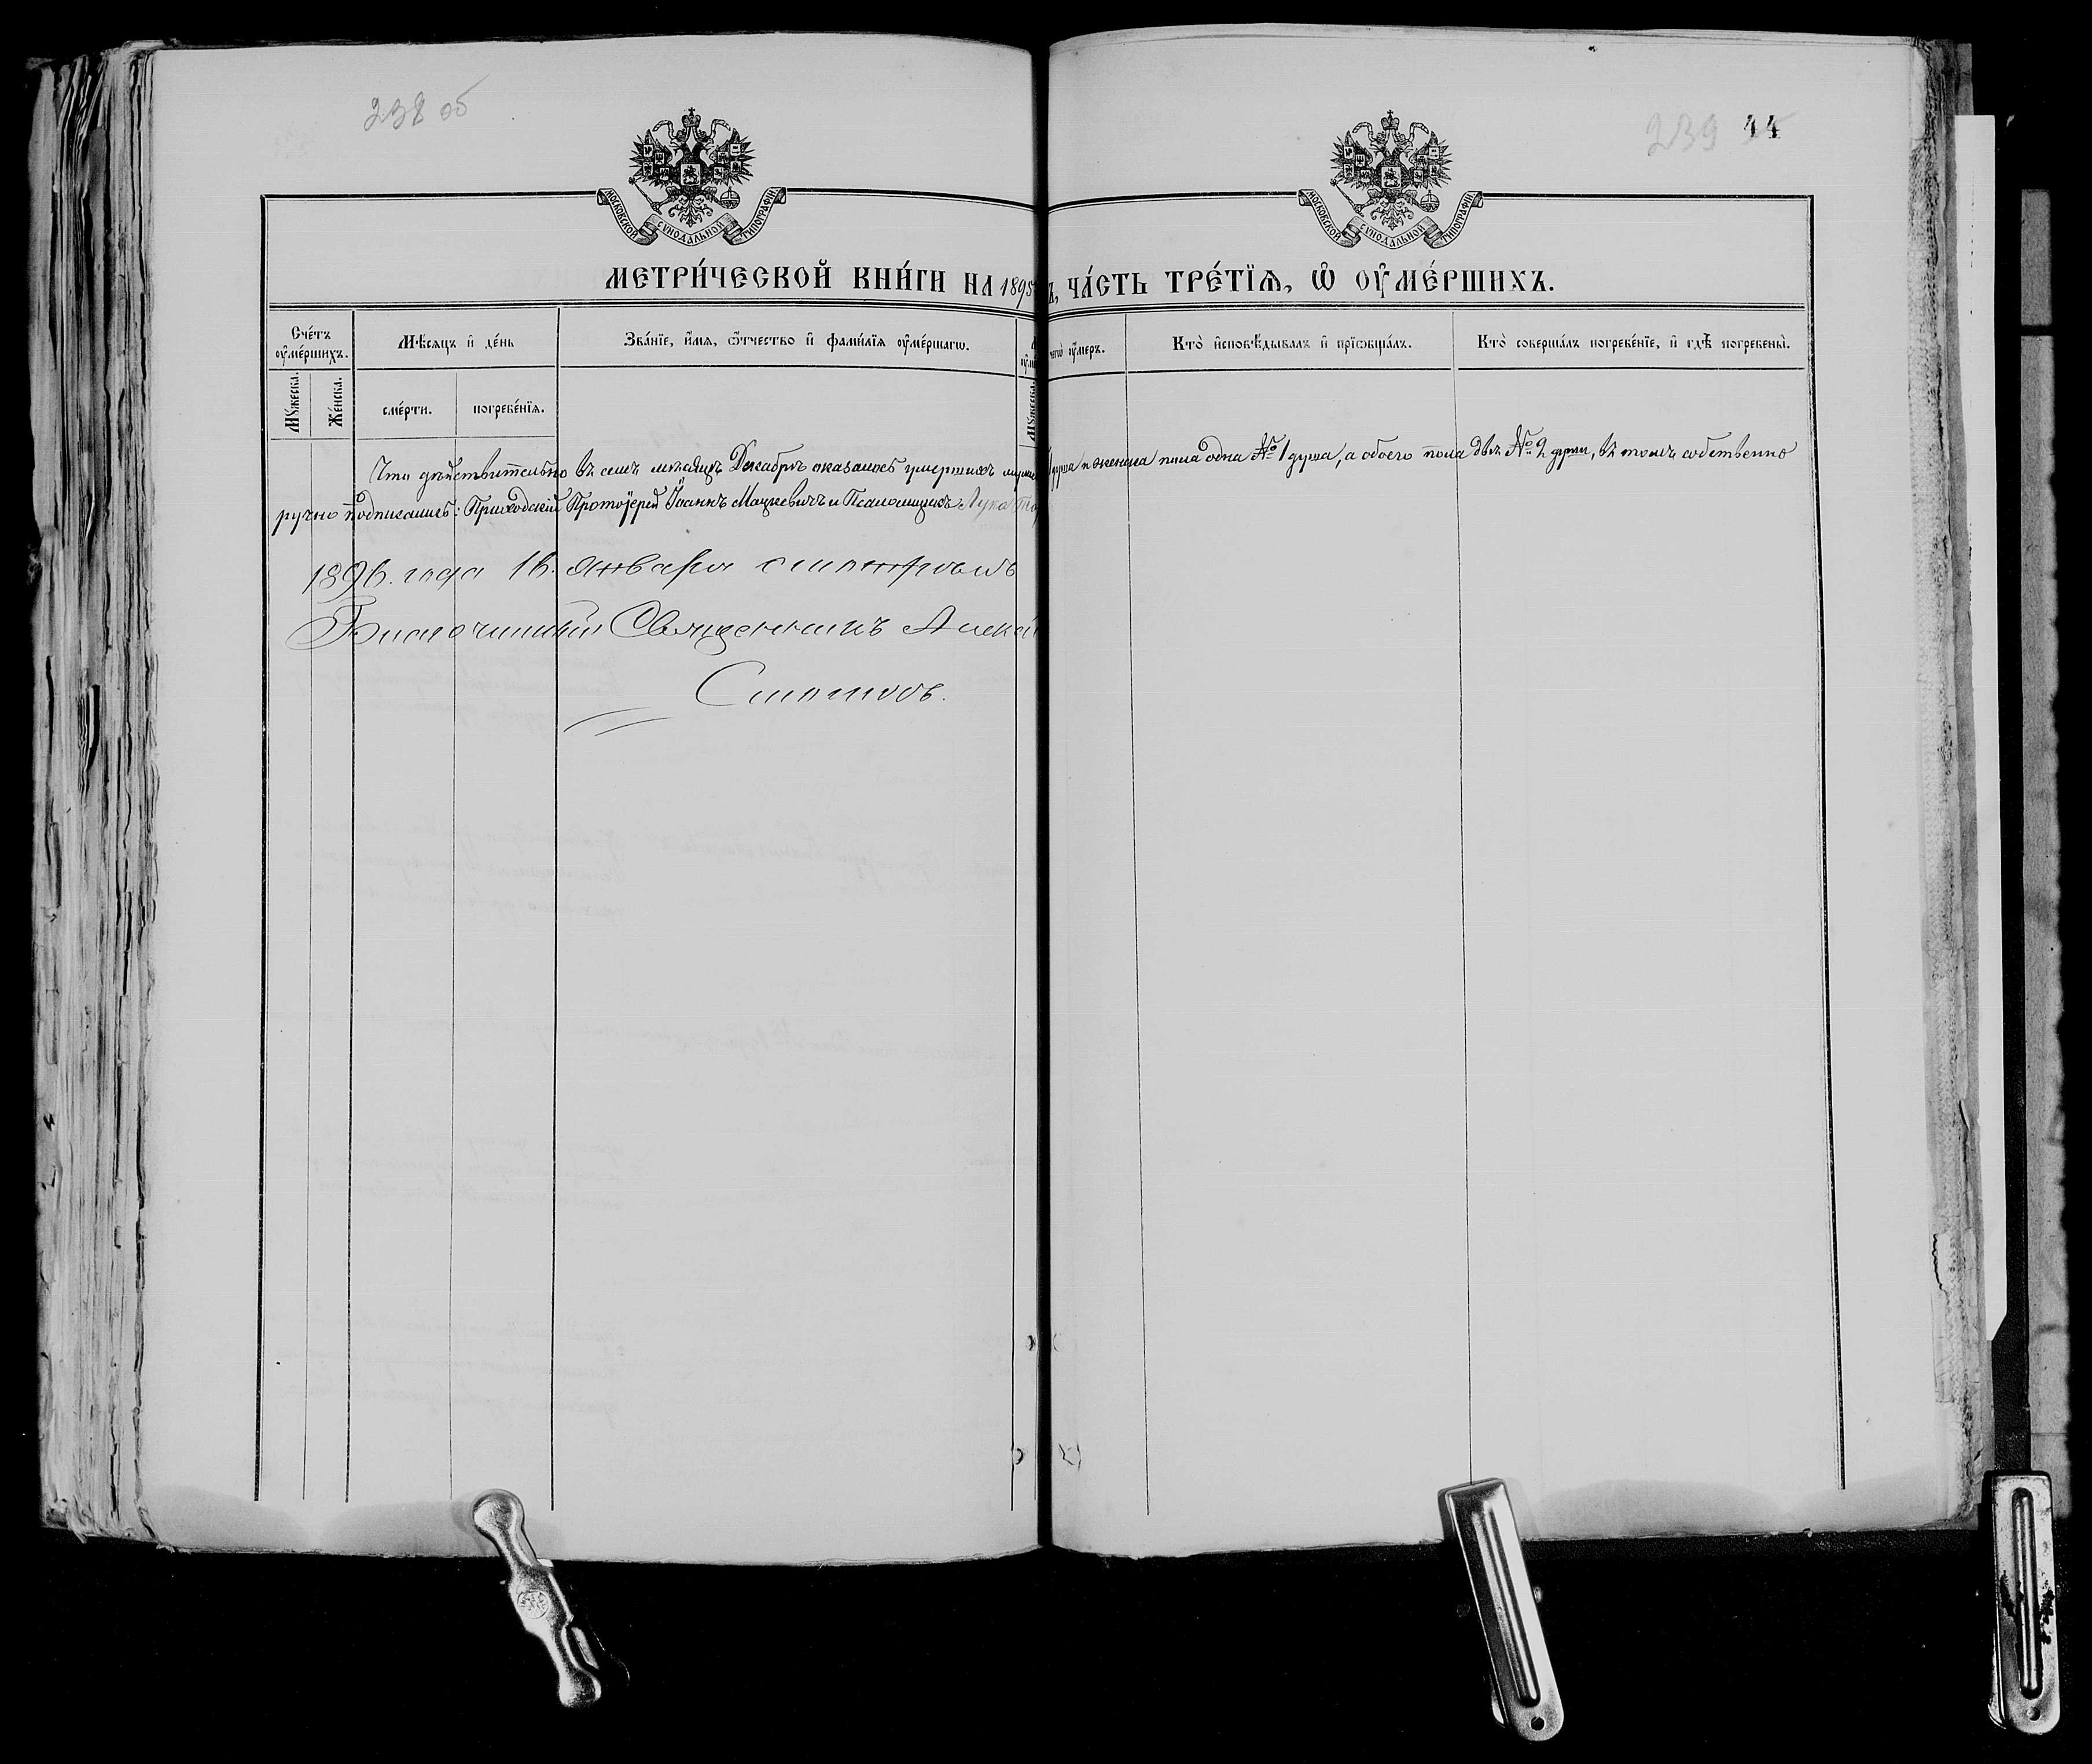 238 об
239 44
МОСКОВСКОЙ СѴНОДАЛЬНОЙ ТИПОГРАФІИ
МОСКОВСКОЙ СѴНОДАЛЬНОЙ ТИПОГРАФІИ
МЕТРИ́ЧЕСКОЙ КНИ́ГИ НА 1895 ЧА́СТЬ ТРЕ́ТЇѦ, Ѡ҆ ОУ҆МЕ́РШИХЪ.
Сче́тъ оу҆ме́ршихъ.
Мѣ́сяцъ и҆ де́нь
Зва́нїе, и҆́мя, ѻ҆́тчество и҆ фами́лїя оу҆ме́ршагѡ.
чегѡ̀ оу҆́меръ.
Кто̀ и҆сповѣ́дывалъ и҆ прїѡбща́лъ.
Кто̀ соверша́лъ погребе́нїе, и҆ гдѣ̀ погребены̀.
Мꙋ́жеска.
Же́нска.
сме́рти.
погребе́нїя.
Мꙋ́жеска.
Что дѣйствительно въ семъ мѣсяцѣ Декабрѣ оказалось умершихъ 1 душа и женска пола одна № 1 душа, а обоего пола двѣ № 2 души, въ томъ собственно
ручно подписались: Приходскій Протоіерей Іоаннъ Мацкевичъ и Псаломщикъ Лука
1896. года 16. Января смотрѣлъ
Благочинный Священникъ